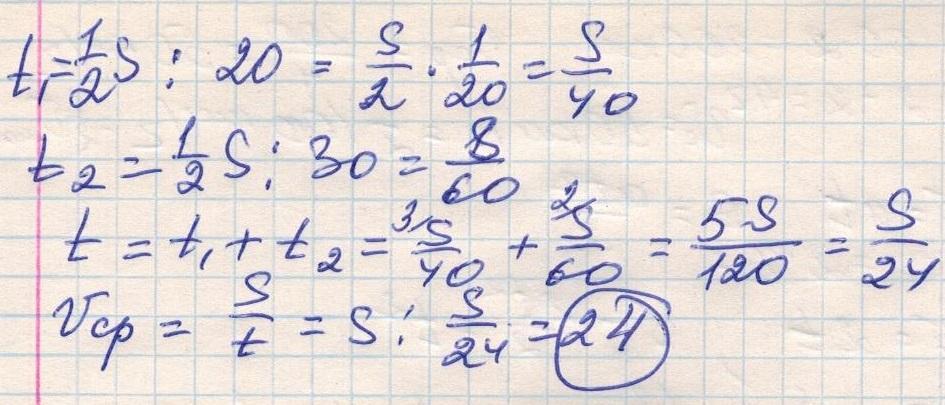 t₁ = 1/2 S : 20 = S/2 · 1/20 = S/40
t₂ = 1/2 S : 30 = S/60
t = t₁ + t₂ = ³⁄S/40 + ²⁄S/60 = 5S/120 = S/24
Vср = S/t = S : S/24 = 24